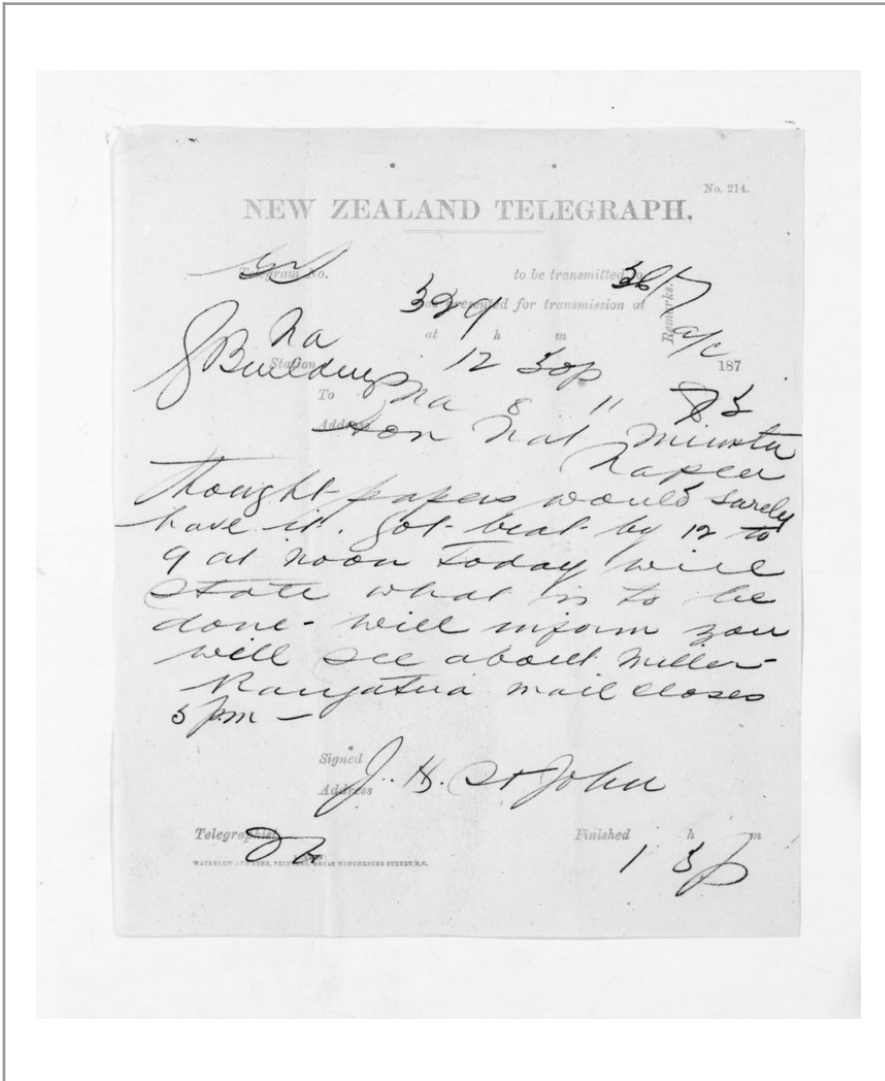 No. 214.
NEW ZEALAND TELEGRAPH.
Telegram No. to be transmitted to
329
was presented for transmission at
Remarks.
Na at h m
Station
G Buildings 12 30p 187
To Na 8 11
Address Hon Nat Minister
Napier
Thought papers would surely
have it. Got beat by 12 to
9 at noon today will
state what is to be
done - will inform you
will see about Miller -
Rangatira mail closes
5 pm -
Signed
Address J. H. St John
Telegraphist Finished h m
1 5 p
WATERLOW AND SONS, PRINTERS, GREAT WINCHESTER STREET, E.C.